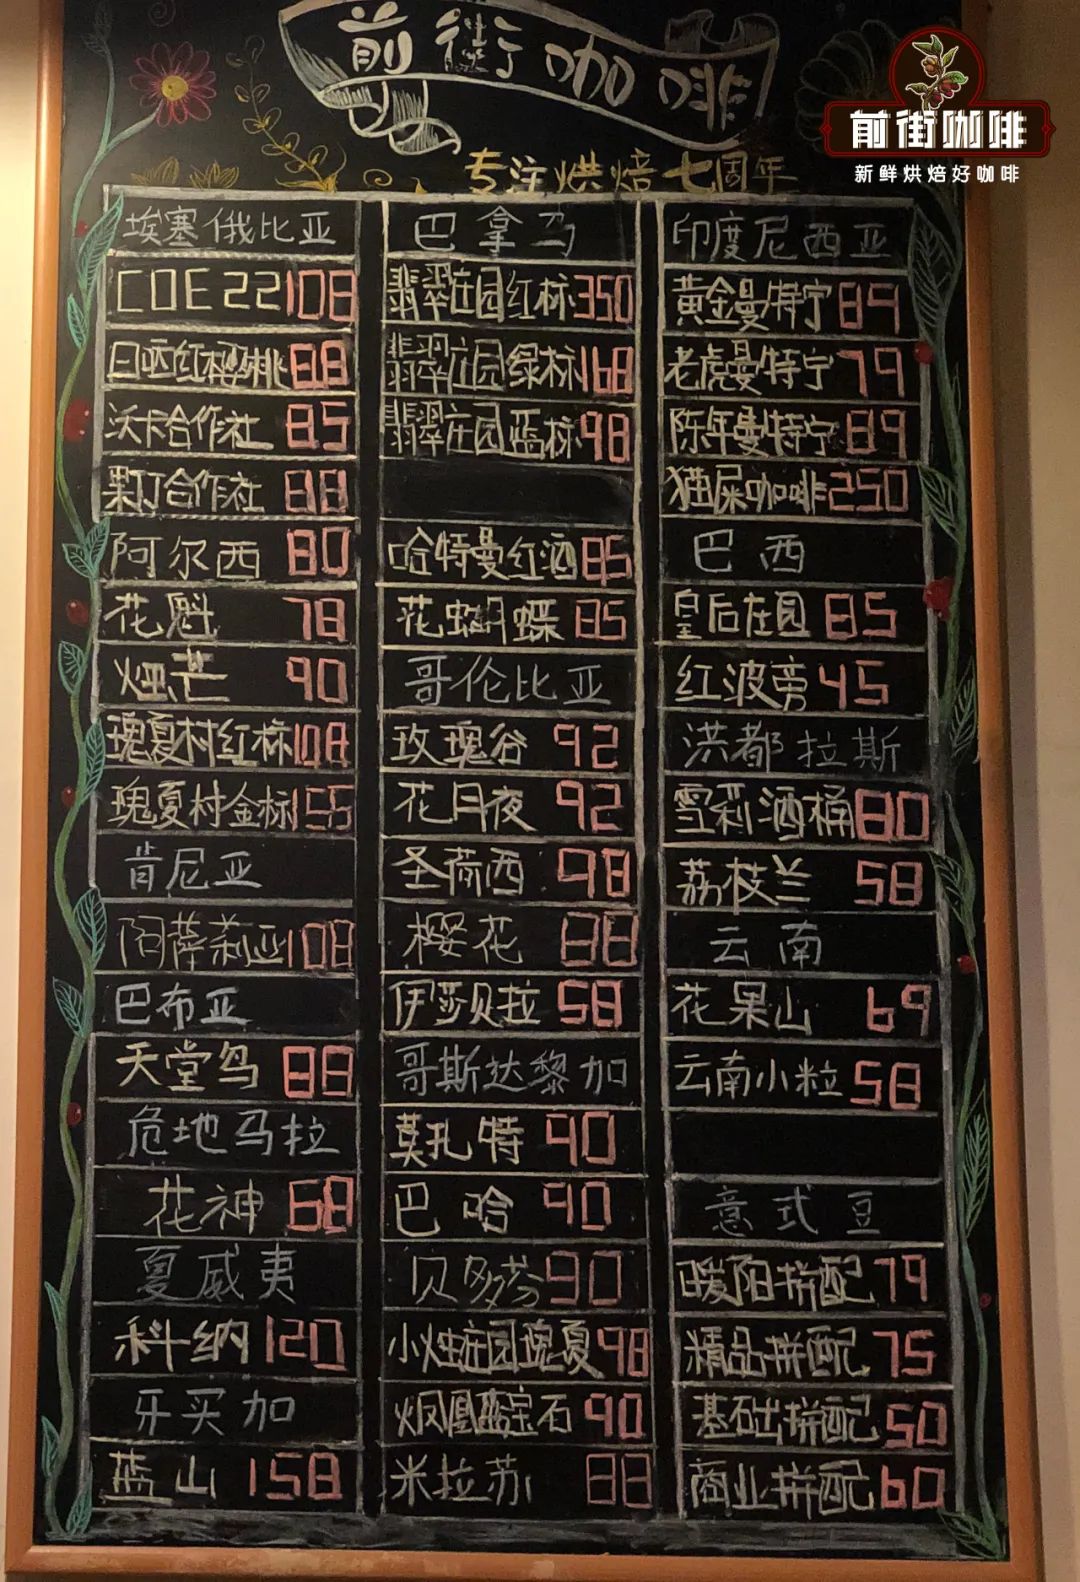 前街咖啡
前街咖啡
新鲜烘焙好咖啡
专注烘焙七周年
埃塞俄比亚
COE 22 108
日晒红樱桃 88
沃卡合作社 85
果丁合作社 88
阿尔西 80
花魁 78
90
瑰夏村红标 108
瑰夏村金标 155
肯尼亚
阿萨莉亚 108
巴布亚
天堂鸟 88
危地马拉
花神 68
夏威夷
科纳 120
牙买加
蓝山 158
巴拿马
翡翠庄园红标 350
翡翠庄园绿标 168
翡翠庄园蓝标 98
哈特曼红酒 85
花蝴蝶 85
哥伦比亚
玫瑰谷 92
花月夜 92
圣荷西 98
樱花 88
伊莎贝拉 58
哥斯达黎加
莫扎特 90
巴哈 90
贝多芬 90
小烛庄园瑰夏 98
凤凰蓝宝石 90
米拉苏 88
印度尼西亚
黄金曼特宁 89
老虎曼特宁 79
陈年曼特宁 89
猫屎咖啡 250
巴西
皇后庄园 85
红波旁 45
洪都拉斯
雪莉酒桶 80
荔枝兰 58
云南
花果山 69
云南小粒 58
意式豆
暖阳拼配 79
精品拼配 75
基础拼配 50
商业拼配 60